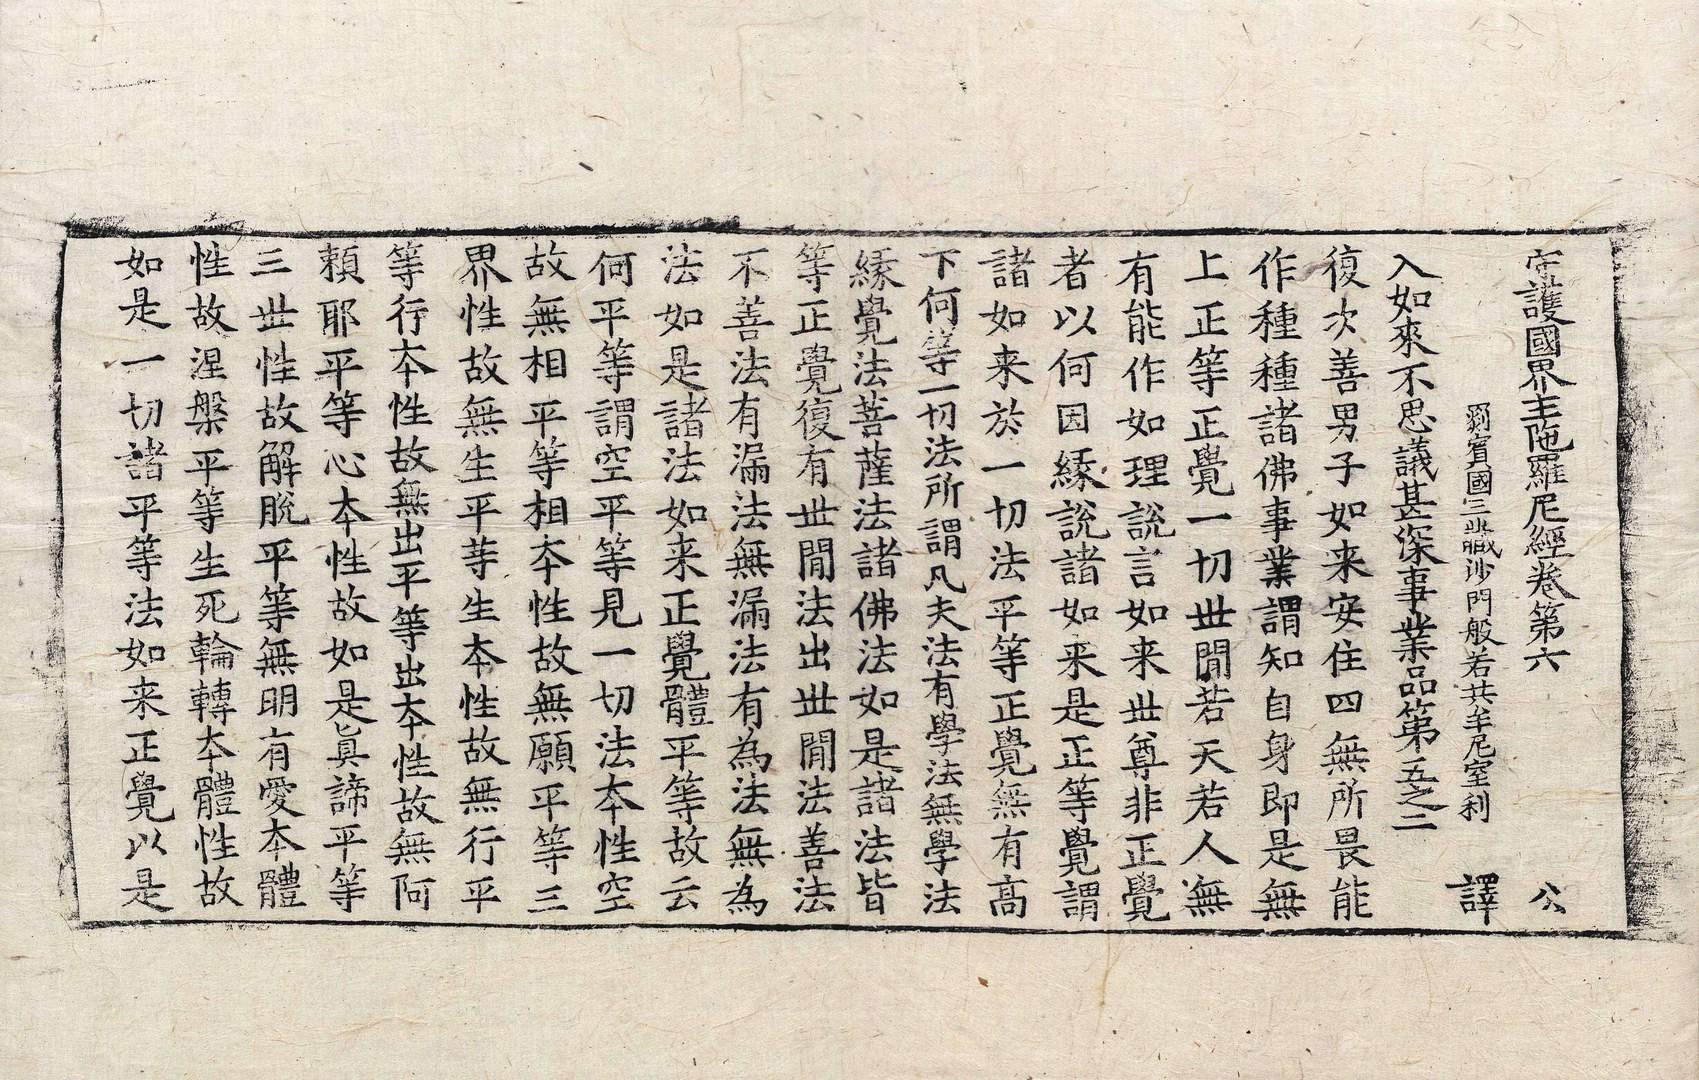 守護國界主陁羅尼經卷第六 公
罽賓國三藏沙門般若共牟尼室利 譯
入如來不思議甚深事業品第五之二
復次善男子如来安住四無所畏能
作種種諸佛事業謂知自身即是無
上正等正覺一切世閒若天若人無
有能作如理說言如来世尊非正覺
者以何因緣說諸如来是正等覺謂
諸如来於一切法平等正覺無有高
下何等一切法所謂凡夫法有學法無學法
緣覺法菩薩法諸佛法如是諸法皆
等正覺復有世閒法出世閒法善法
不善法有漏法無漏法有為法無為
法如是諸法如来正覺體平等故云
何平等謂空平等見一切法本性空
故無相平等相本性故無願平等三
界性故無生平等生本性故無行平
等行本性故無出平等出本性故無阿
賴耶平等心本性故如是眞諦平等
三世性故解脫平等無明有愛本體
性故涅槃平等生死輪轉本體性故
如是一切諸平等法如来正覺以是